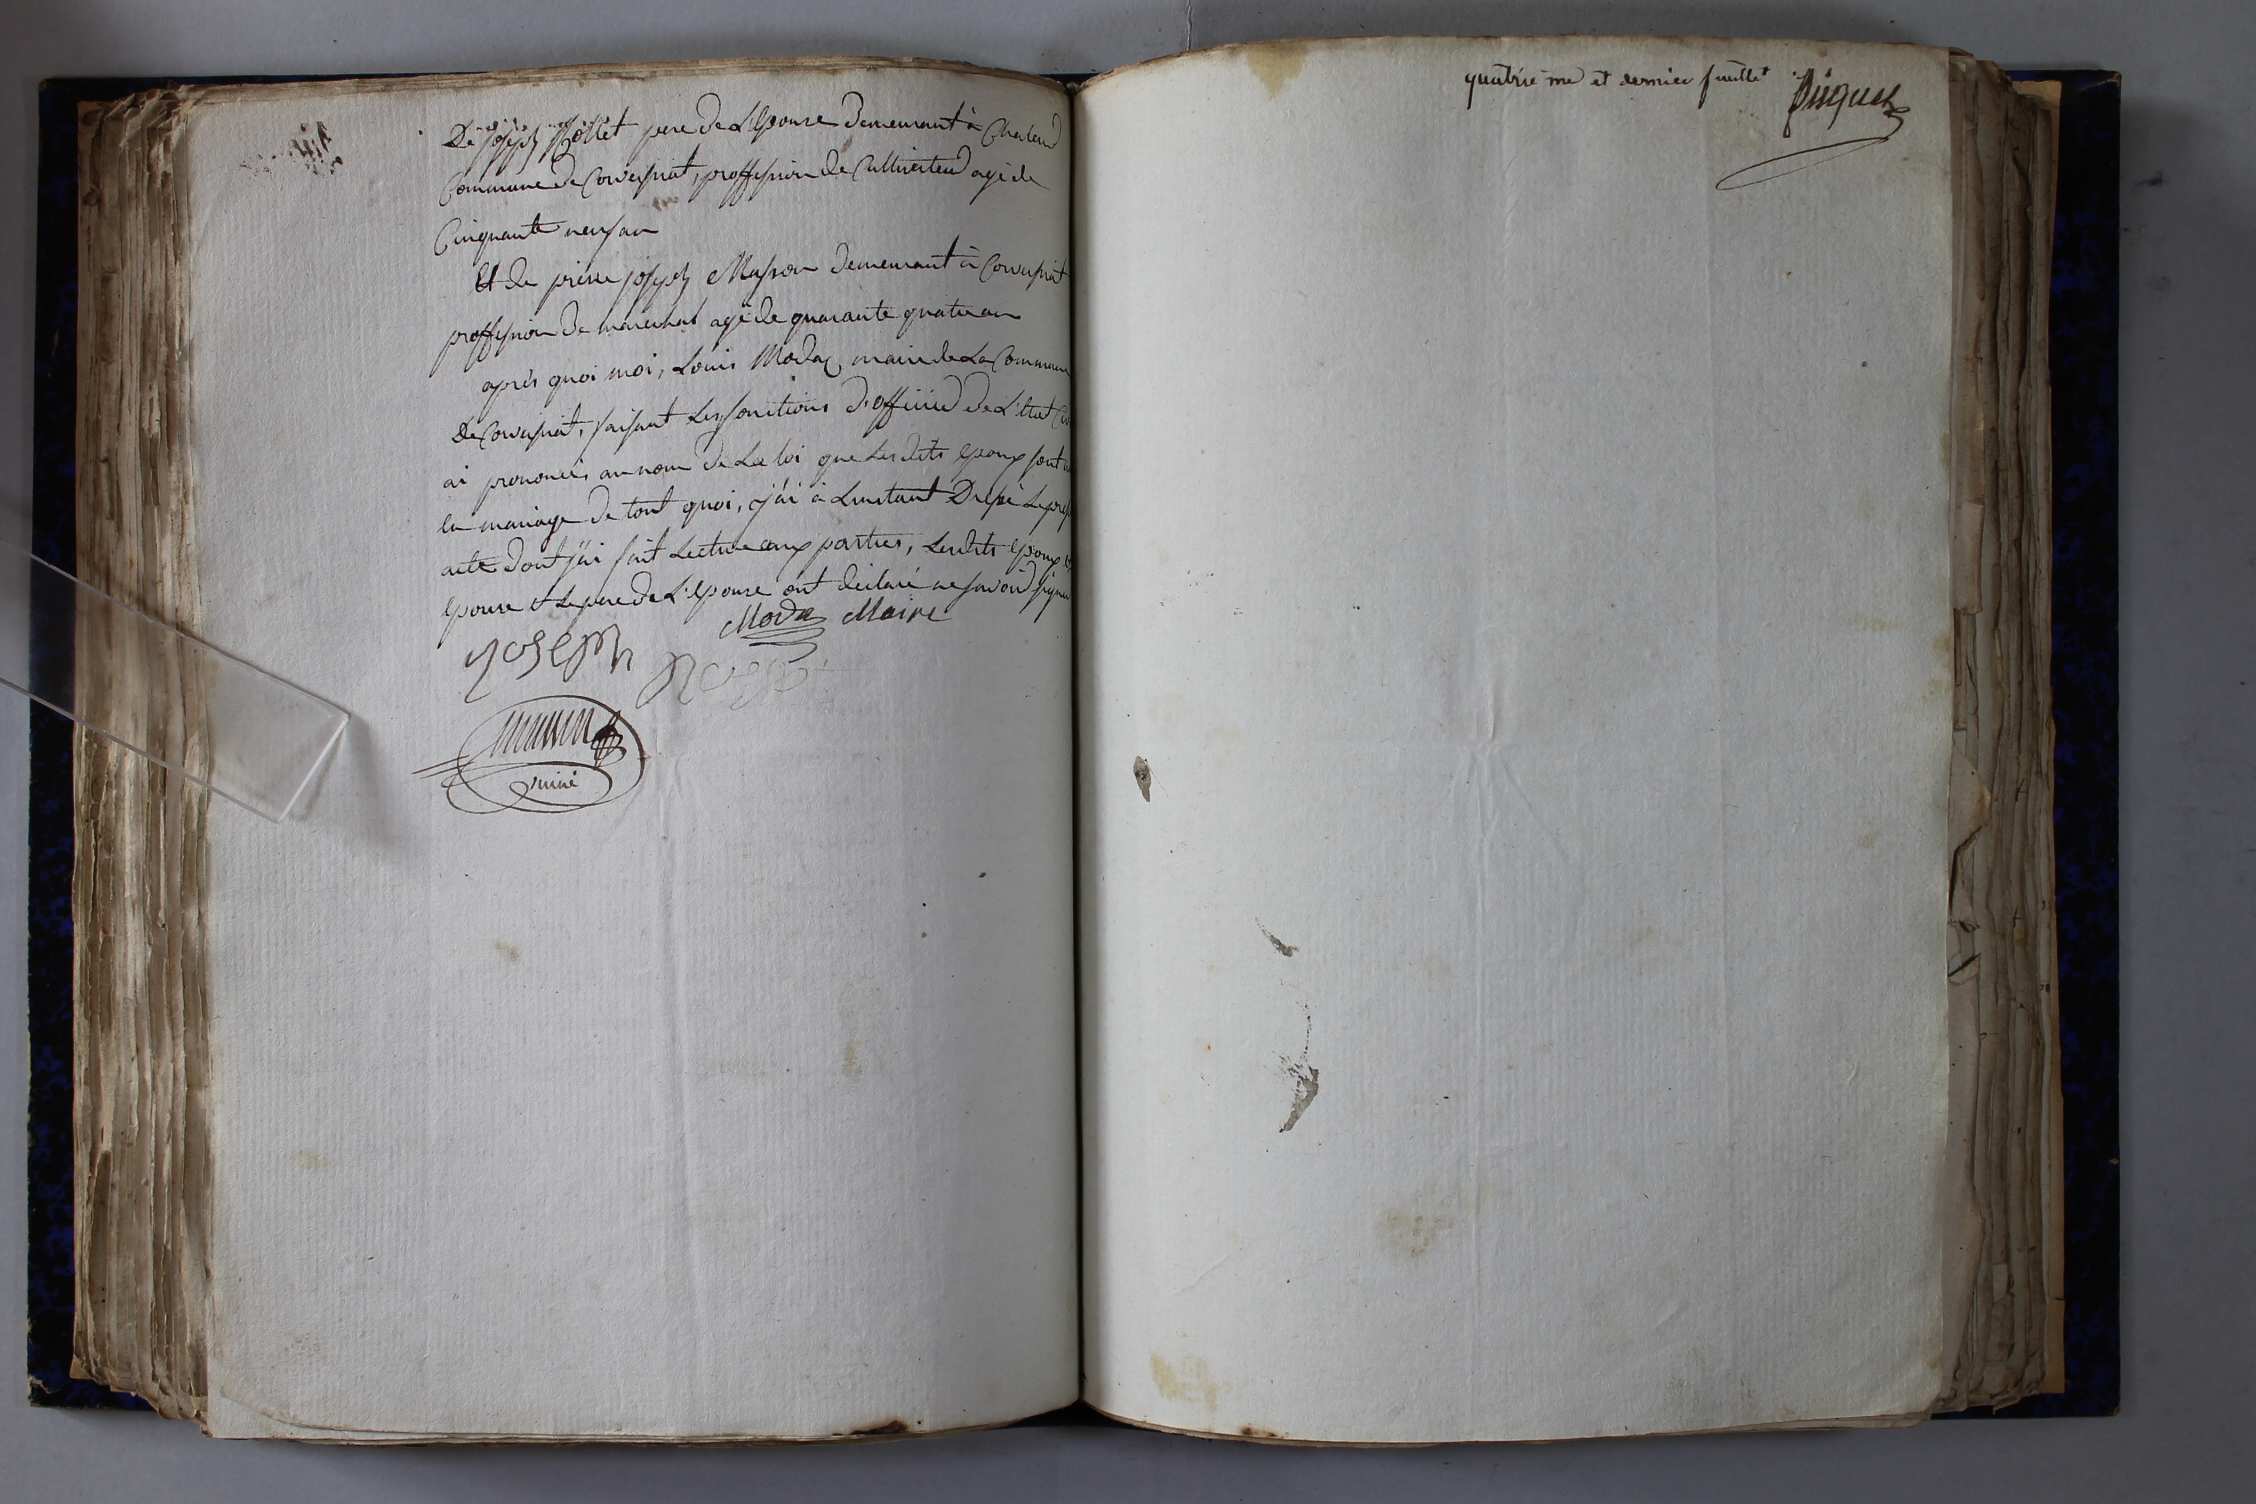 De joseph Rollet pere de L'Epouse demeurant à
Commune de Corveissiat, proffession de Cultivateur agé de
Cinquante neuf an
Et de pierre joseph Masson demeurant à Corveissiat
proffession de marechal agé de quarante quatre an
après quoi moi, Louis Modas maire de La Commune
de Corveissiat, faisant Les fonctions d'officier de L'Etat
ai prononcés au nom de La loi que Lesdits epoux sont
en mariage de tout quoi, j'ai à Linstant Dressé Le
acte dont j'ai fait Lecture aux parties, Lesdits epoux
epouse et Le pere de L'epouse ont déclaré ne savoir signer
Modas Maire
JOSEPh
quatrie me et dernier feuillet